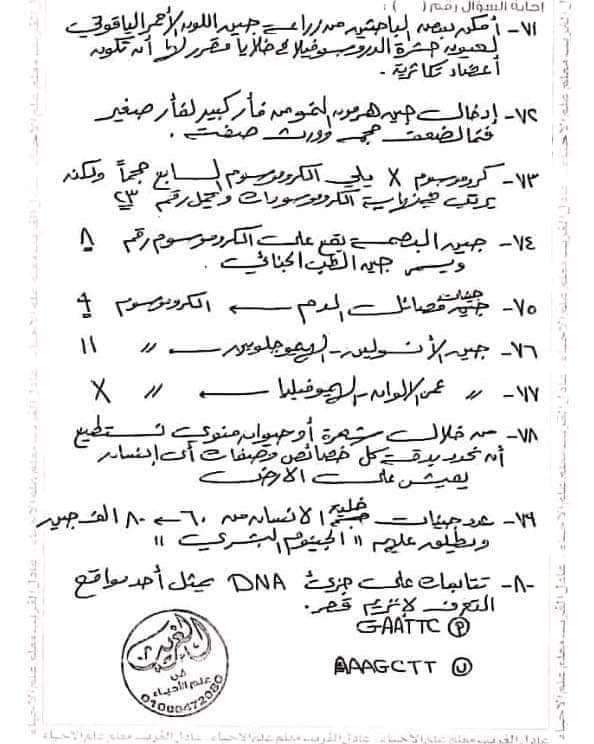 إجابة السؤال رقم ( ) :
٧١- أمكن لبعض الباحثين من زراعة جين اللون الأحمر الياقوتي
لعيون حشرة الدروسوفيلا في خلايا مقرر لها أن تكون
أعضاء تكاثرية .
٧٢- إدخال جين هرمون النمو من فأر كبير لفأر صغير
فتضاعف حجمه وورث صفته .
٧٣- كروموسوم X يلي الكروموسوم السابع حجماً ولكنه
يرتب في نهاية الكروموسومات ويحمل رقم ٢٣
٧٤- جين البصمة يقع على الكروموسوم رقم ٨
ويسمى جين الطب الجنائي .
٧٥- جينات فصائل الدم ← الكروموسوم ٩
٧٦- جين الأنسولين - الهيموجلوبين ← // // 11
٧٧- // عمى الالوان - الهيموفيليا ← // X
٧٨- من خلال شعرة أو حيوان منوي تستطيع
أن تحدد بدقة كل خصائص وصفات أي إنسان
يعيش على الارض
٧٩- عدد جينات خلية الانسان من ٦٠ ← ٨٠ الف جين
ويطلق عليهم " الجينوم البشري "
٨٠- تتابعات على جزئ DNA يمثل أحد مواقع
التعرف لإنزيم قصر.
GAATTC (P)
AAAGCTT (ب)
الغريب
في
علم الأحياء
عادل الغريب معلم علم الاحياء